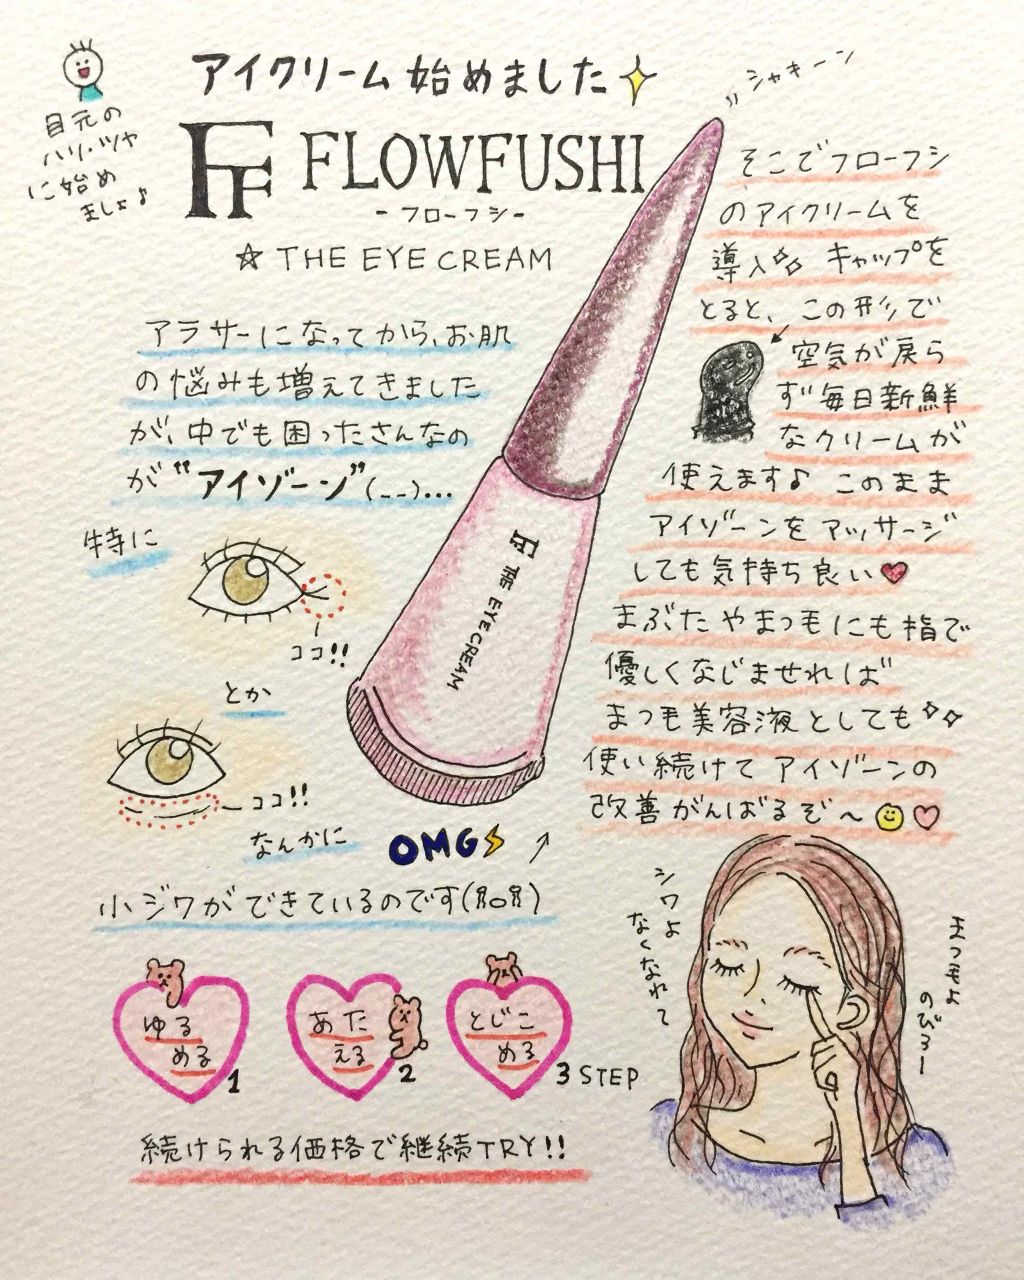 アイクリーム始めました
目元の
ハリ・ツヤ
に始め
ましょ♪
シャキーン
FF FLOWFUSHI
-フローフシ-
☆ THE EYE CREAM
アラサーになってから、お肌
の悩みも増えてきました
が、中でも困ったさんなの
が"アイゾーン"(-_-)...
特に
ココ!!
とか
ココ!!
なんかに
小ジワができているのです
OMG
FF THE EYE CREAM
そこでフローフシ
のアイクリームを
導入 キャップを
とると、この形で
空気が戻ら
ず毎日新鮮
なクリームが
使えます♪ このまま
アイゾーンをマッサージ
しても気持ち良い
まぶたやまつ毛にも指で
優しくなじませれば
まつ毛美容液としても
使い続けてアイゾーンの
改善がんばるぞ〜
シワよ
なくなれて
まつ毛よ
のびろー
ゆる
める
1
あた
える
2
とじこ
める
3 STEP
続けられる価格で継続TRY!!